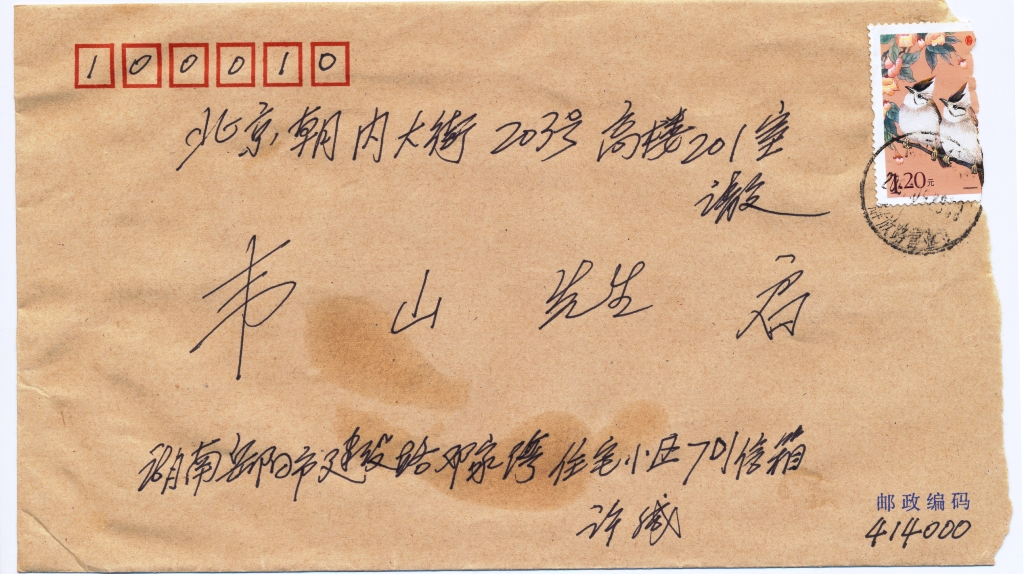 100010
北京朝内大街203号高楼201室
1.20元
请交
韦山先生启
湖南岳阳市建设路邓家湾住宅小区701信箱
邮政编码
许
414000